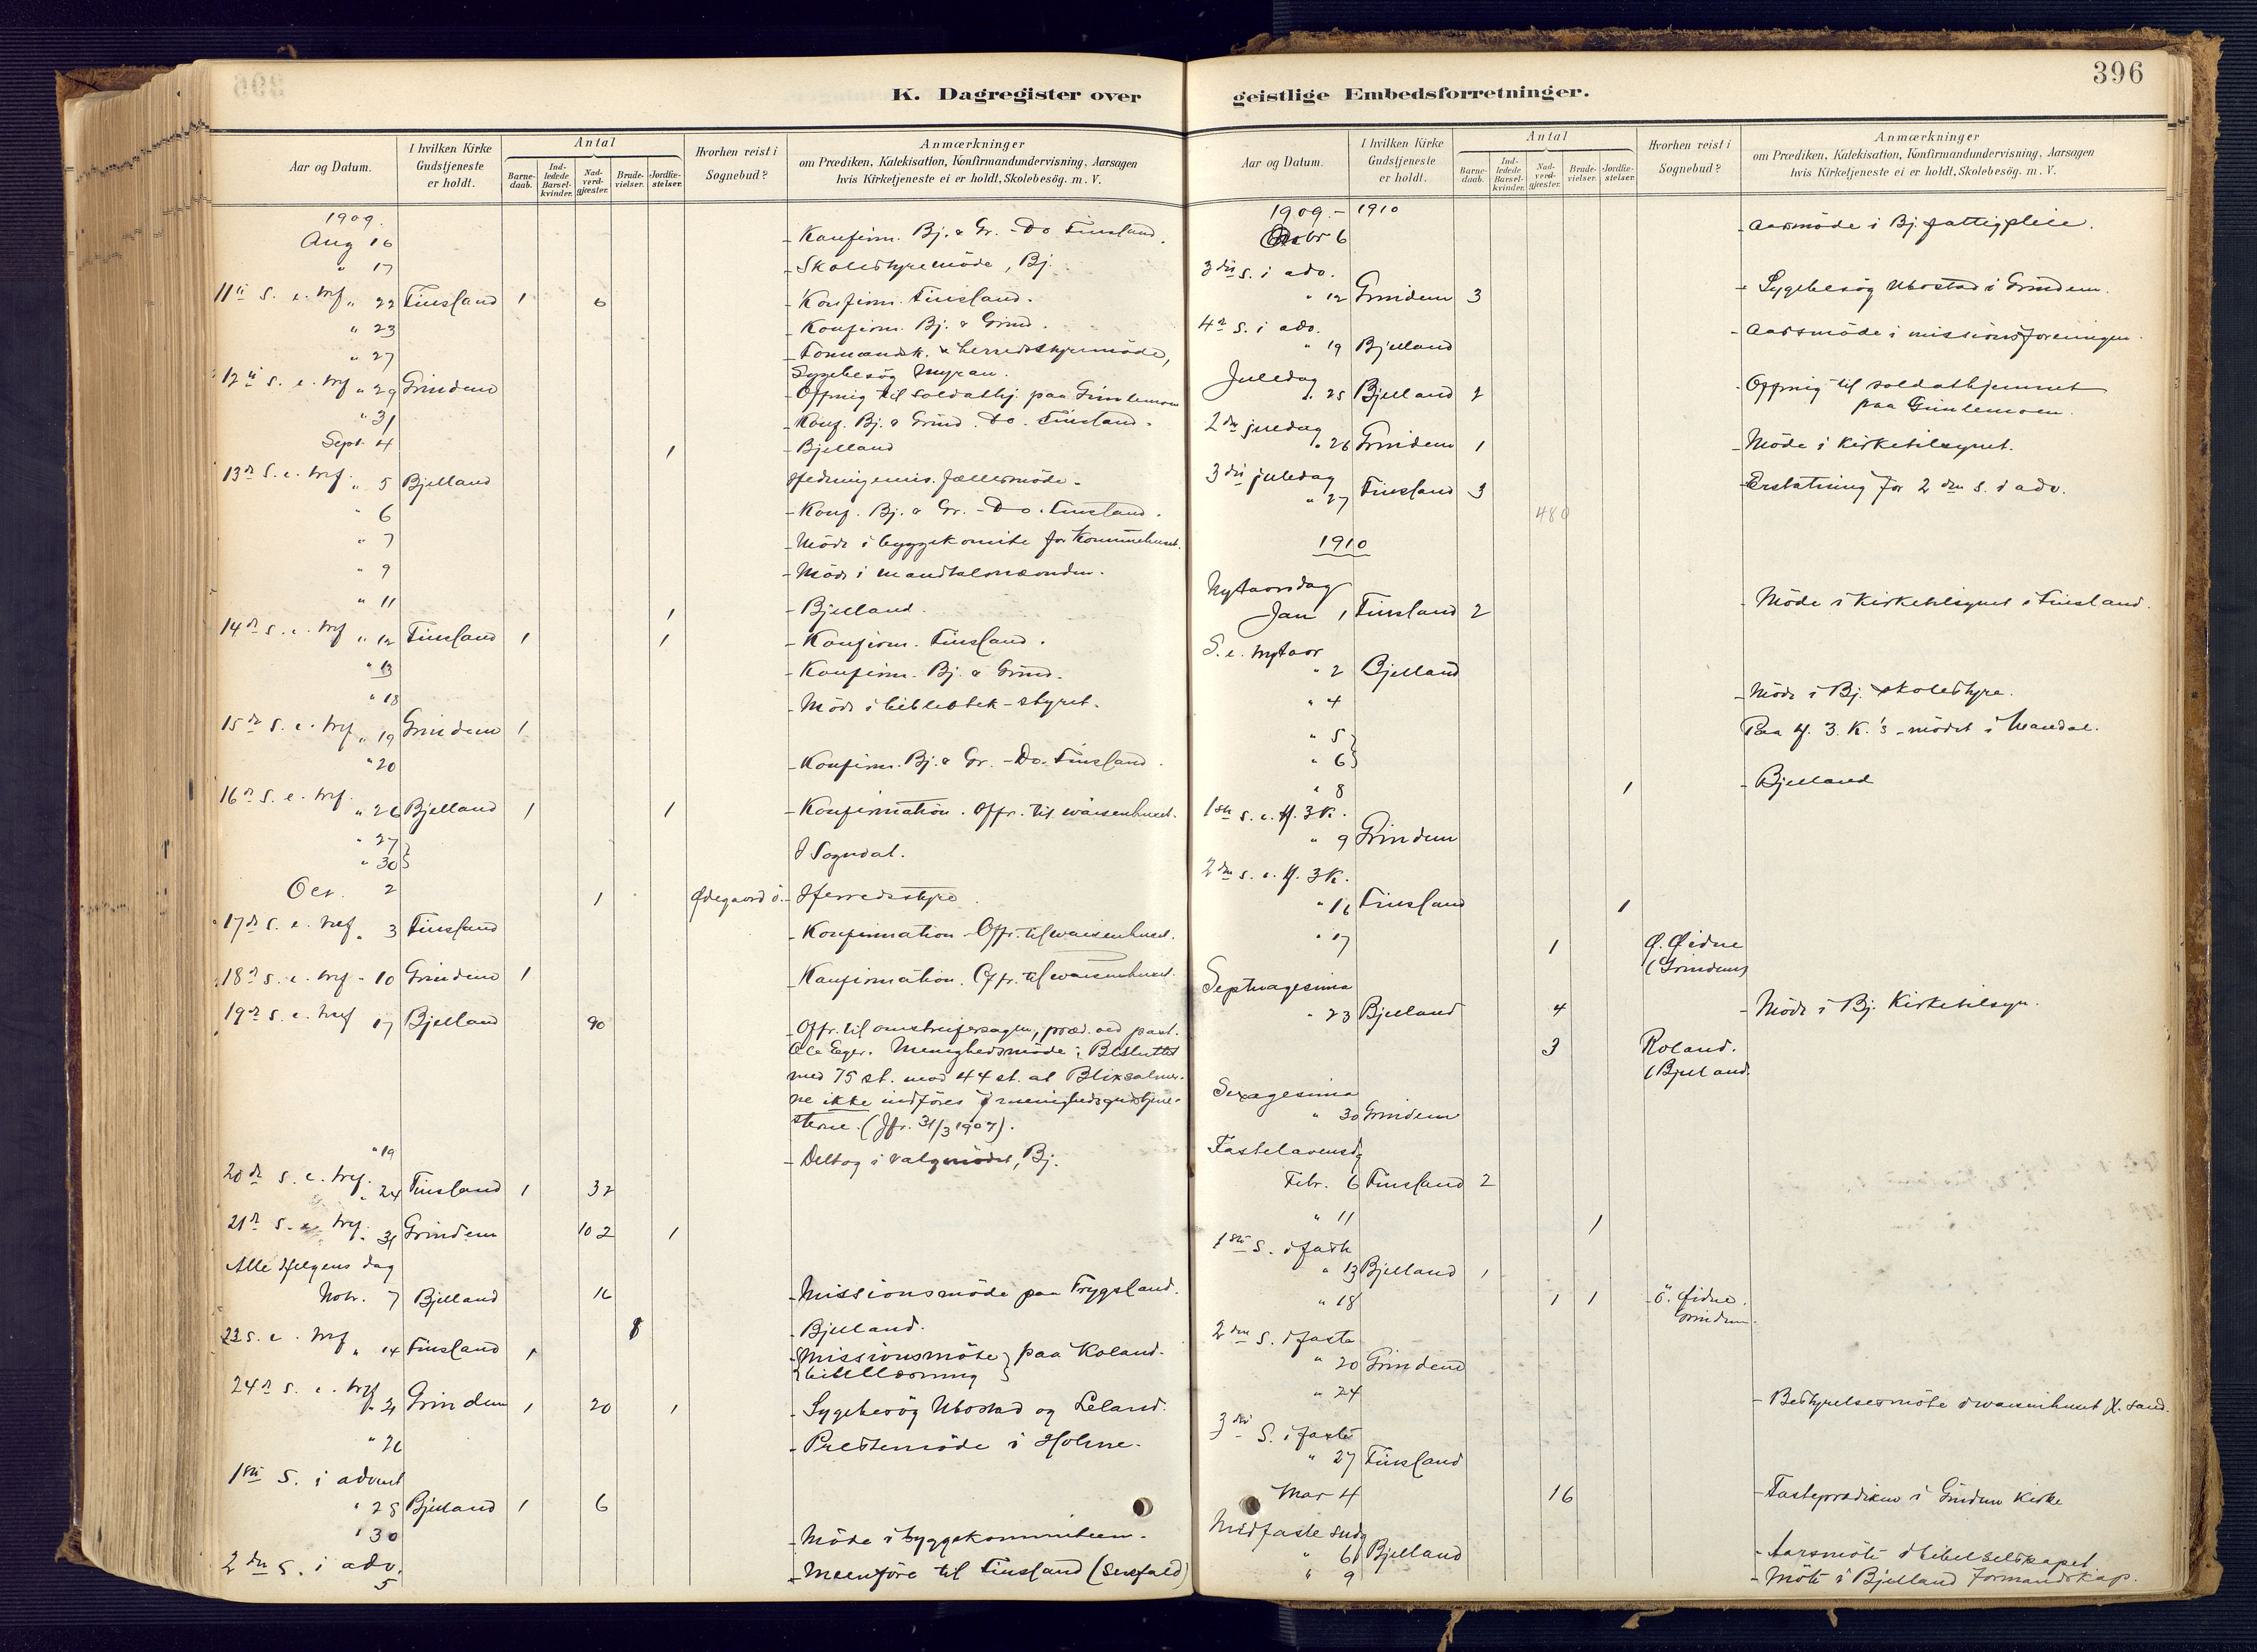 396
K. Dagregister over
Aar og Datum.
I hvilken Kirke Gudstjeneste er holdt.
Antal
Barne-daab.
Ind-ledede Barsel-kvinder.
Nad-verd-gjæster.
Brude-vielser.
Jordfæ-stelser.
Hvorhen reist i Sognebud?
Anmærkninger
om Prædiken, Katekisation, Konfirmandundervisning, Aarsagen
hvis Kirketjeneste ei er holdt, Skolebesög. m. V.
1909.
Aug 16 - Konfirm. Bj. & Gr. - Do Finsland.
" 17 - Skolestyremöde, Bj.
11te S. e. tref. " 22 Finsland 1 6 - Konfirm. Finsland.
" 23 - Konfirm. Bj. & Grind.
" 27 - Formandsk. & herredsstyremöde,
Sygebesög Myran.
12te S. e. tref " 29 Grindem - Offring til soldathj. paa Gimlemoen
" 31 - Konf. Bj. & Grind. Do. Finsland.
Sept. 4 1 - Bjelland
13de S. e. tref. " 5 Bjelland fællesmöde.
" 6 - Konf. Bj. & Gr. - Do. Finsland.
" 7 - Möde i byggekomite for Kommunehuset.
" 9 - Möde i mandtalsnævnden.
" 11 1 - Bjelland.
14de S. e. tref " 12 Finsland 1 1 - Konfirm. Finsland.
" 13 - Konfirm. Bj. & Grind.
" 18 - Möde i bibliotek-styret.
15de S. e. tref " 19 Grindem 1
" 20 - Konfirm. Bj. & Gr. - Do. Finsland.
16de S. e. tref. " 26 Bjelland 1 1 - Konfirmation. Offr. til waisenhuset.
" 27 }
" 30 } I Sogndal.
Oct. 2 1 Ødegaard ö. - Herredsstyre
17de S. e. tref " 3 Finsland - Konfirmation - Offr. til waisenhuset.
18de S. e. tref - 10 Grindem 1 - Konfirmation. Offr. til waisenhuset.
19de S. e. tref 17 Bjelland 90 - Offr. til præd. ved past.
Ole Eger. Menighedsmöde; Besluttet
med 75 st. mod 44 st. at Blixsalmer-
ne ikke indföres i menighedsgudstjene-
sterne. (Jfr. 31/3 1907).
" 19 - Deltog i valgmödet, Bj.
20de S. e. tref. " 24 Finsland 1 32
21de S. e. tref. " 31 Grindem 102 1
Alle Helgens dag
Nobr. 7 Bjelland 16 - Missionsmöde paa Trygsland.
8 - Bjelland.
23 S. e. tref " 14 Finsland 1 - { Missionsmöte } paa Roland.
{ bibellæsning }
24de S. e. tref " 21 Grindem 1 20 1 - Sygebesög Ubostad og Leland.
" 26 - Prestemöde i Holme.
1ste S. i advent
" 28 Bjelland 1 6
" 30 - Möde i byggekommiteen.
2den S. i adv. 5 - Meenföre til Finsland (Snefald)
geistlige Embedsforretninger.
Aar og Datum.
I hvilken Kirke Gudstjeneste er holdt.
Antal
Barne-daab.
Ind-ledede Barsel-kvinder.
Nad-verd-gjæster.
Brude-vielser.
Jordfæ-stelser.
Hvorhen reist i Sognebud?
Anmærkninger
om Prædiken, Katekisation, Konfirmandundervisning, Aarsagen
hvis Kirketjeneste ei er holdt, Skolebesög. m. V.
1909 - 1910
6 - Aarsmöde i Bj. fattigpleie.
3die S. i adv.
" 12 Grindem 3 - Sygebesög Ubostad i Grindem.
4de S. i adv.
" 19 Bjelland - Aarsmöde i missionsforeningen.
Juledag
" 25 Bjelland 2 - Offring til soldathjemmet
paa Gimlemoen.
2den juledag
" 26 Grindem 1 - Möde i Kirketilsynet.
3die juledag
" 27 Finsland 3 - Erstatning for 2den S. i adv.
480
1910
Nytaarsdag
Jan 1 Finsland 2 - Möde i Kirketilsynet i Finsland.
S. e. nytaar
" 2 Bjelland
" 4 - Möde i Bj. skolestyre.
" 5 }
" 6 } Paa H. 3. K.'s - mödet i Mandal.
" 8 1 - Bjelland
1ste S. e. H. 3 K.
" 9 Grindem
2den S. e. H. 3 K.
" 16 Finsland 1
" 17 1 Ø. Øidne
(Grindem)
Septuagesima
" 23 Bjelland 4 - Möde i Bj. Kirketilsyn.
3 Roland.
(Bjelland.
Sexagesima
" 30 Grindem
Fastelavensd.
Febr. 6 Finsland 2
" 11 1
1ste S. i faste
" 13 Bjelland 1
" 18 1 1 ö. Øidne.
Grindem.
2den S. i faste
" 20 Grindem
" 24 - Bestyrelsesmöte i waisenhuset X. sand.
3die S. i faste
" 27 Finsland
Mar 4 16 - Fasteprædiken i Grindem Kirke
Midfaste sndg
" 6 Bjelland - Aarsmöte i bibelselskapet
" 9 - Möte i Bjelland Formandskap.